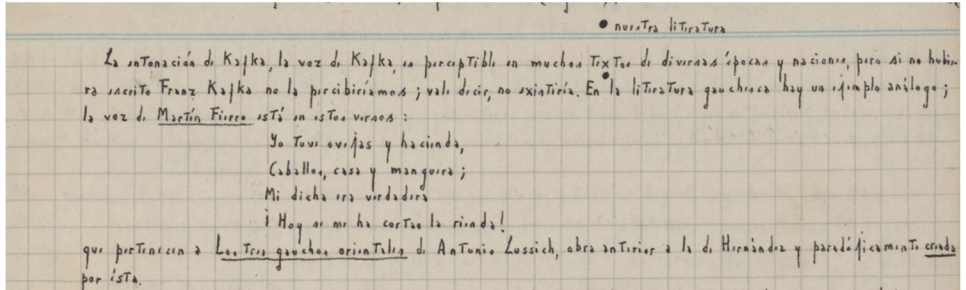 ● nuestra literatura
La entonación de Kafka, la voz de Kafka, es perceptible en muchos textos de diversas épocas y naciones, pero si no hubie-
ra escrito Franz Kafka no la percibiríamos; vale decir, no existiría. En la literatura gauchesca hay un ejemplo análogo;
la voz de Martín Fierro está en estos versos:
Yo tuve ovejas y hacienda,
Caballos, casa y manguera;
Mi dicha era verdadera
¡Hoy se me ha cortao la rienda!
que pertenecen a Los tres gauchos orientales de Antonio Lussich, obra anterior a la de Hernández y paradójicamente creada
por ésta.